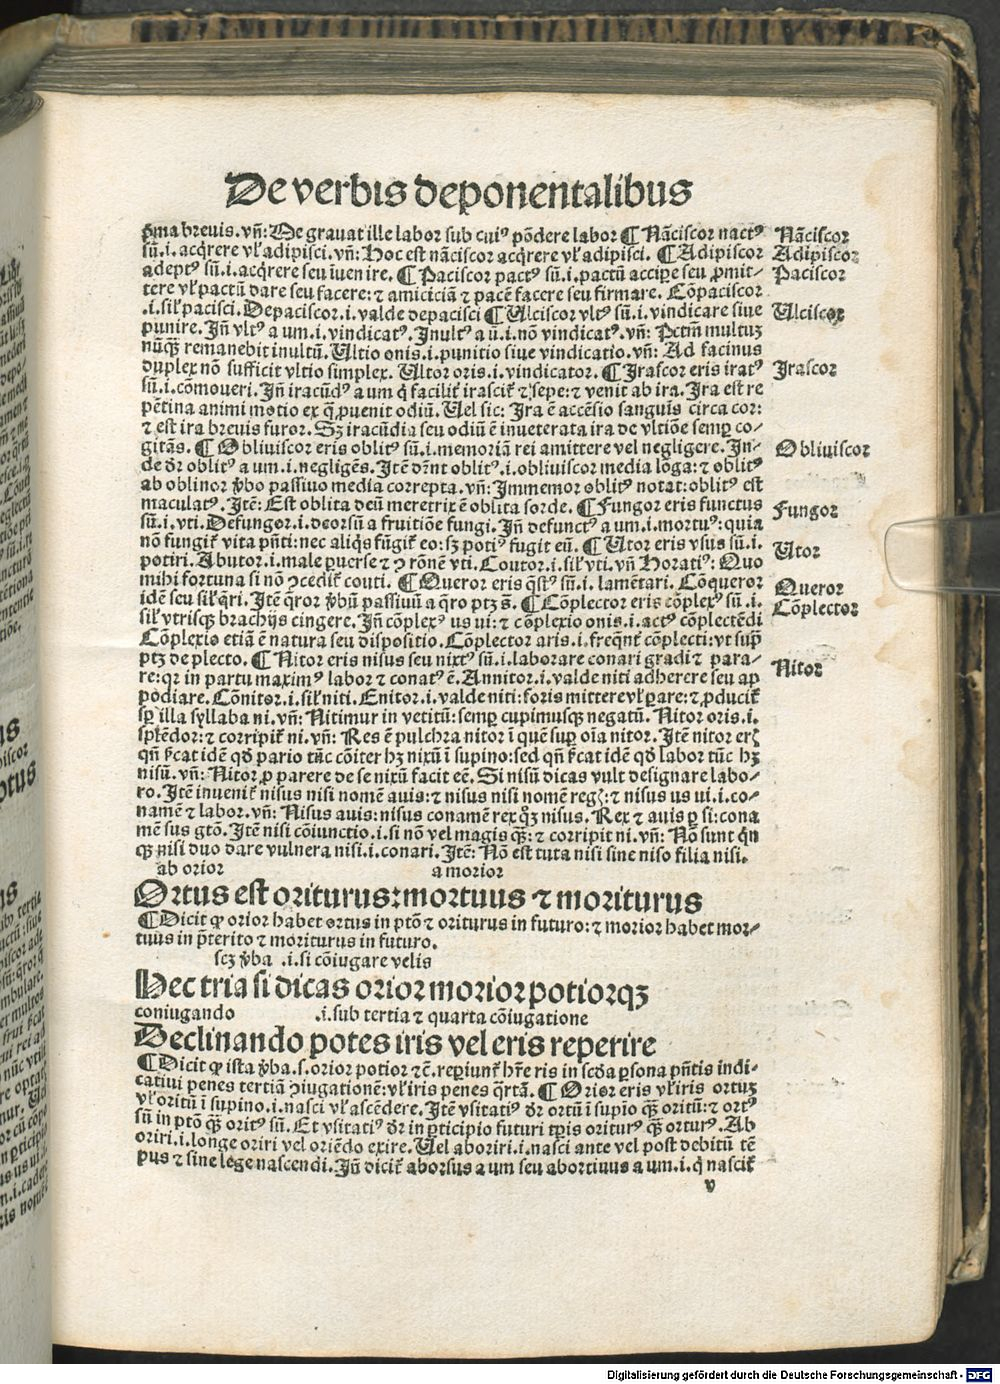 De verbis deponentalibus
p̄ma brevis. vn̄: De gravat ille labor sub cuiꝰ põdere labor ¶ Nãciscor nactꝰ Nãciscor
sũ .i. acq̃rere vl̓ adipisci. vn̄: Hoc est nãciscor acq̃rere vl̓ adipisci. ¶ Adipiscor Adipiscor
adeptꝰ sũ .i. acq̃rere seu ĩuenire. ¶ Paciscor pactꝰ sũ .i. pactũ accip̱e seu ꝓmit⸗ Paciscor
tere vl̓ pactũ dare seu facere: ⁊ amiciciã ⁊ pacẽ facere seu firmare. Cõpaciscor
.i. sil̓ pacisci. Depaciscor .i. valde depacisci ¶ Ulciscor vltꝰ sũ .i. vindicare siue Ulciscor
punire. Jn̄ vltꝰ a um .i. vindicatꝰ. Jnultꝰ a ũ .i. nõ vindicatꝰ. vn̄: Pctm̄ multuȝ
nũqꝫ remanebit inultũ. Ultio onis .i. punitio siue vindicatio. vn̄: Ad facinus
duplex nõ sufficit vltio simplex. Ultor oris .i. vindicator. ¶ Jrascor eris iratꝰ Jrascor
sũ .i. cõmoueri. Jn̄ iracũdꝰ a um q̇ facilit̓ irascit̓ ⁊ sepe: ⁊ venit ab ira. Jra est re
pẽtina animi motio ex q̃ ꝓuenit odiũ. Uel sic: Jra ẽ accẽsio sanguĩs circa cor:
⁊ est ira brevis furor. Sȝ iracũdia seu odiũ ẽ inveterata ira de vltiõe semꝑ co⸗
gitãs. ¶ Obliuiscor eris oblitꝰ sũ .i. memoriã rei amittere vel negligere. Jn⸗ Obliuiscor
de dr̃ oblitꝰ a um .i. negligẽs. Jtẽ dñt oblitꝰ .i. obliuiscor media lõga: ⁊ oblitꝰ
ab oblinor v̓bo passiuo media correpta. vn̄: Jmmemor oblitꝰ notat: oblitꝰ est
maculatꝰ. Jtẽ: Est oblita deũ meretrix ẽ oblita sorde. ¶ Fungor eris functus Fungor
sũ .i. vti. Defungor .i. deorsũ a fruitiõe fungi. Jn̄ defunctꝰ a um .i. mortuꝰ: quia
nõ fungit̓ vita pñti: nec aliq̇s fũgit̓ eo: sȝ potiꝰ fugit eũ. ¶ Utor eris vsus sũ .i. Utor
potiri. Abutor .i. male ꝑuerse ⁊ ꝯ rõnẽ vti. Coutor .i. sil̓ vti. vn̄ Horatiꝰ: Quo
mihi fortuna si nõ ꝯcedit̓ couti. ¶ Queror eris q̃stꝰ sũ .i. lamẽtari. Cõqueror Queror
idẽ seu sil̓ q̃ri. Jtẽ q̃ror v̓bũ passiuũ a q̃ro ptȝ s̃. ¶ Cõplector eris cõplexꝰ sũ .i. Cõplector
sil̓ vtrisqꝫ brachijs cingere. Jn̄ cõplexꝰ us ui: ⁊ cõplexio onis .i. actꝰ cõplectẽdi
Cõplexio etiã ẽ natura seu dispositio. Cõplector aris .i. freq̃nt̓ cõplecti: vt sup̃
ptȝ de plecto. ¶ Nitor eris nisus seu nixtꝰ sũ .i. laborare conari gradi ⁊ para⸗ Nitor
re: qr in partu maximꝰ labor ⁊ conatꝰ ẽ. Annitor .i. valde niti adherere seu ap
podiare. Cõnitor .i. sil̓ niti. Enitor .i. valde niti: foris mittere vl̓ pare: ⁊ ꝓducit̓
sp̱ illa syllaba ni. vn̄: Nitimur in vetitũ: semꝑ cupimusqꝫ negatũ. Nitor oris .i.
splẽdor: ⁊ corripit̓ ni. vn̄: Res ẽ pulchra nitor ĩ quẽ suꝑ oĩa nitor. Jtẽ nitor erꝭ
qñ sic̓at idẽ qd̓ pario tũc cõiter hȝ nixũ ĩ supino: sed qñ sic̓at idẽ qd̓ labor tũc hȝ
nisũ. vn̄: Nitor ꝓ parere de se nixũ facit eẽ. Si nisũ dicas vult designare labo⸗
ro. Jtẽ invenit̓ nisus nisi nomẽ auis: ⁊ nisus nisi nomẽ regꝭ: ⁊ nisus us ui .i. co⸗
namẽ ⁊ labor. vn̄: Nisus auis: nisus conamẽ rex qȝ nisus. Rex ⁊ auis ꝑ si: cona
mẽ sus gtõ. Jtẽ nisi cõiunctio .i. si nõ vel magis qꝫ: ⁊ corripit ni. vn̄: Nõ sunt q̇n
qꝫ nisi duo dare vulnera nisi .i. conari. Jtẽ: Nõ est tuta nisi sine niso filia nisi.
ab orior a morior
Ortus est oriturus: mortuus ⁊ moriturus
¶ Dicit ꝙ orior habet ortus in ptõ ⁊ oriturus in futuro: ⁊ morior habet mor⸗
tuus in p̄terito ⁊ moriturus in futuro.
scȝ v̓ba .i. si cõiugare velis
Hec tria si dicas orior morior potiorqꝫ
coniugando .i. sub tertia ⁊ quarta cõiugatione
Declinando potes iris vel eris reperire
¶ Dicit ꝙ ista v̓ba .s. orior potior ⁊c̃. reꝑiunt̓ hr̃e ris in scd̓a ꝑsona pñtis indi⸗
catiui penes tertiã ꝯiugationẽ: vl̓ iris penes q̃rtã. ¶ Orior eris vl̓ iris ortuȝ
vl̓ oritũ ĩ supino .i. nasci vl̓ ascẽdere. Jtẽ vsitatiꝰ dr̃ ortũ ĩ supio qꝫ oritũ: ⁊ ortꝰ
sũ in ptõ qꝫ oritꝰ sũ. Et vsitatiꝰ dr̃ in ꝑticipio futuri tꝑis oriturꝰ qꝫ orturꝰ. Ab
oriri .i. longe oriri vel oriẽdo exire. Uel aboriri .i. nasci ante vel post debitũ tẽ
pus ⁊ sine lege nascendi. Jn̄ dicit̓ aborsus a um seu abortiuus a um .i. q̇ nascit̓
v
Digitalisierung gefördert durch die Deutsche Forschungsgemeinschaft - DFG